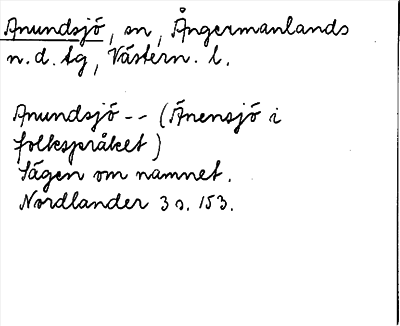 Anundsjö, sn, Ångermanlands
n.d. tg, Västern. l.
Anundsjö -- (Änensjö i
folkspråket)
Sägen om namnet.
Nordlander 3 s. 153.